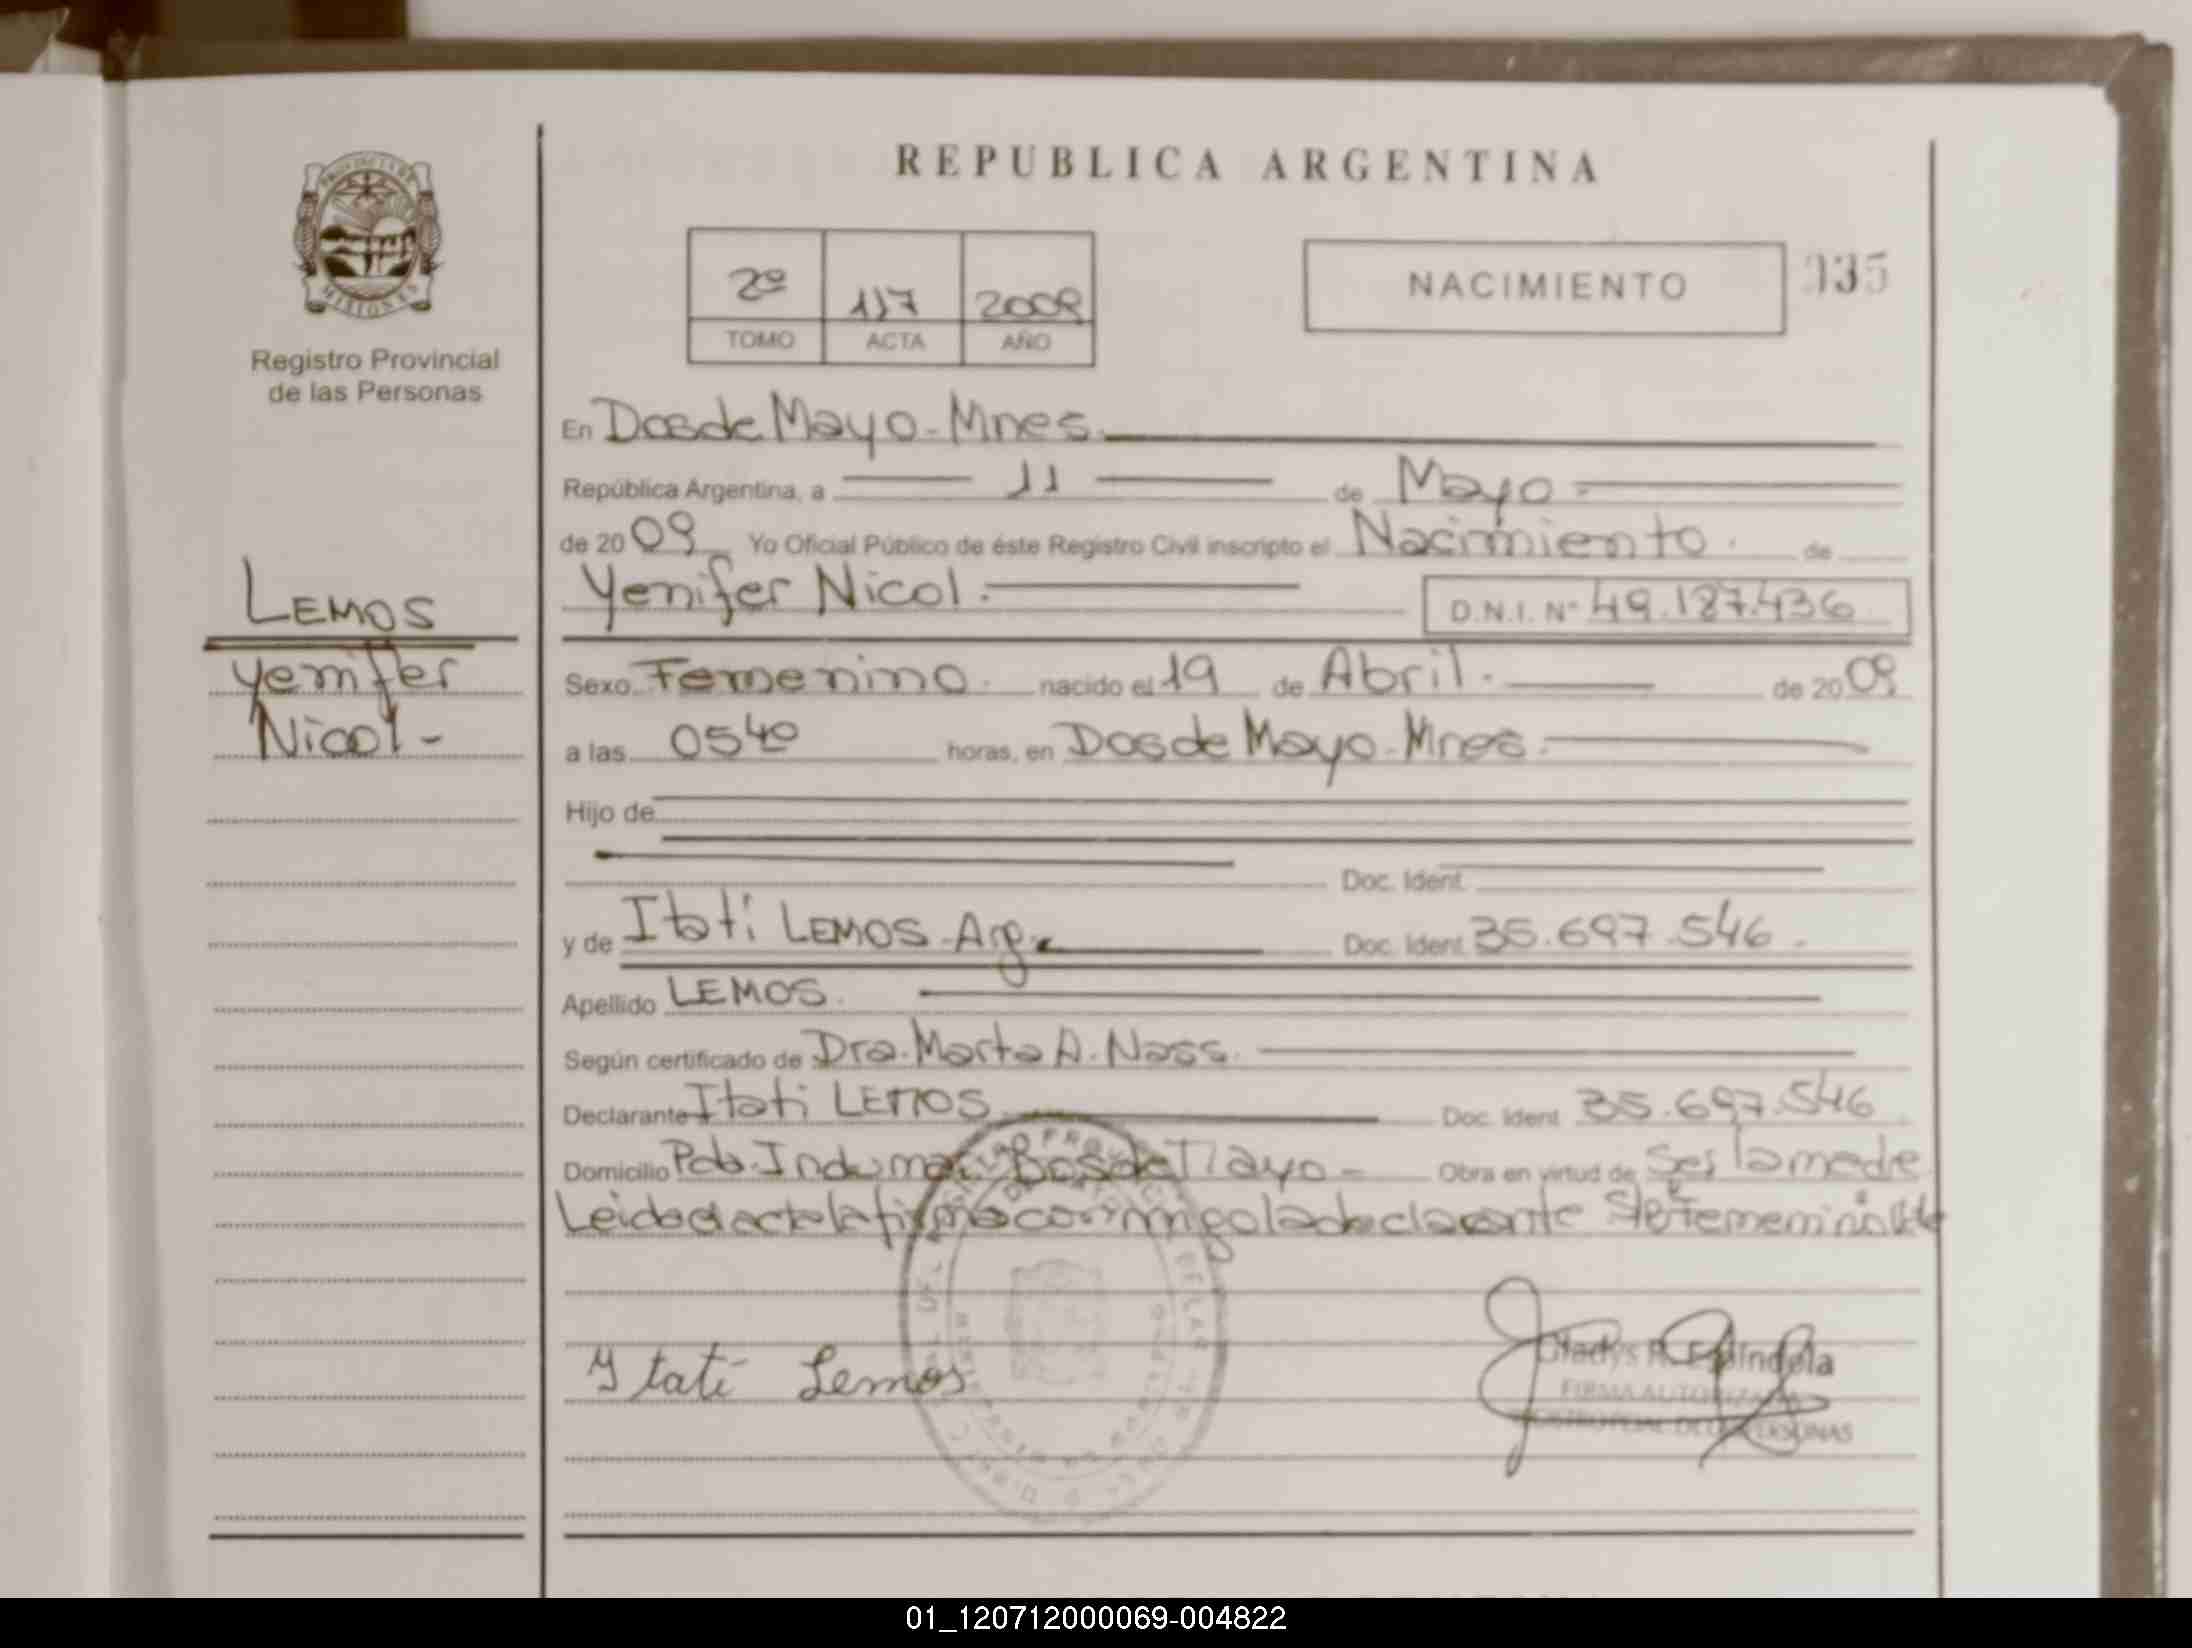 REPUBLICA ARGENTINA
PROVINCIA DE
MISIONES
Registro Provincial
de las Personas
2º 117 2009
TOMO ACTA AÑO
NACIMIENTO
035
En Dos de Mayo - Mnes.
República Argentina, a 11 de Mayo
de 2009 Yo Oficial Público de éste Registro Civil inscripto el Nacimiento. de
Yenifer Nicol. D.N.I. Nº 49.187.436
LEMOS
Yenifer
Nicol -
Sexo Femenino. nacido el 19 de Abril. de 2009
a las 05 40 horas, en Dos de Mayo - Mnes.
Hijo de
Doc. Ident.
y de Itati LEMOS - Arg. Doc. Ident. 35.697.546.
Apellido LEMOS.
Según certificado de Dra. Marta A. Nass.
Declarante Itati LEMOS Doc. Ident. 35.697.546
Domicilio Pdo. Dos de Mayo - Obra en virtud de Ser la madre
Leida el acta la firma conmigo la declarante
Itati Lemos
Gladys R. Espíndola
FIRMA AUTORIZADA
DE LAS PERSONAS
01_120712000069-004822